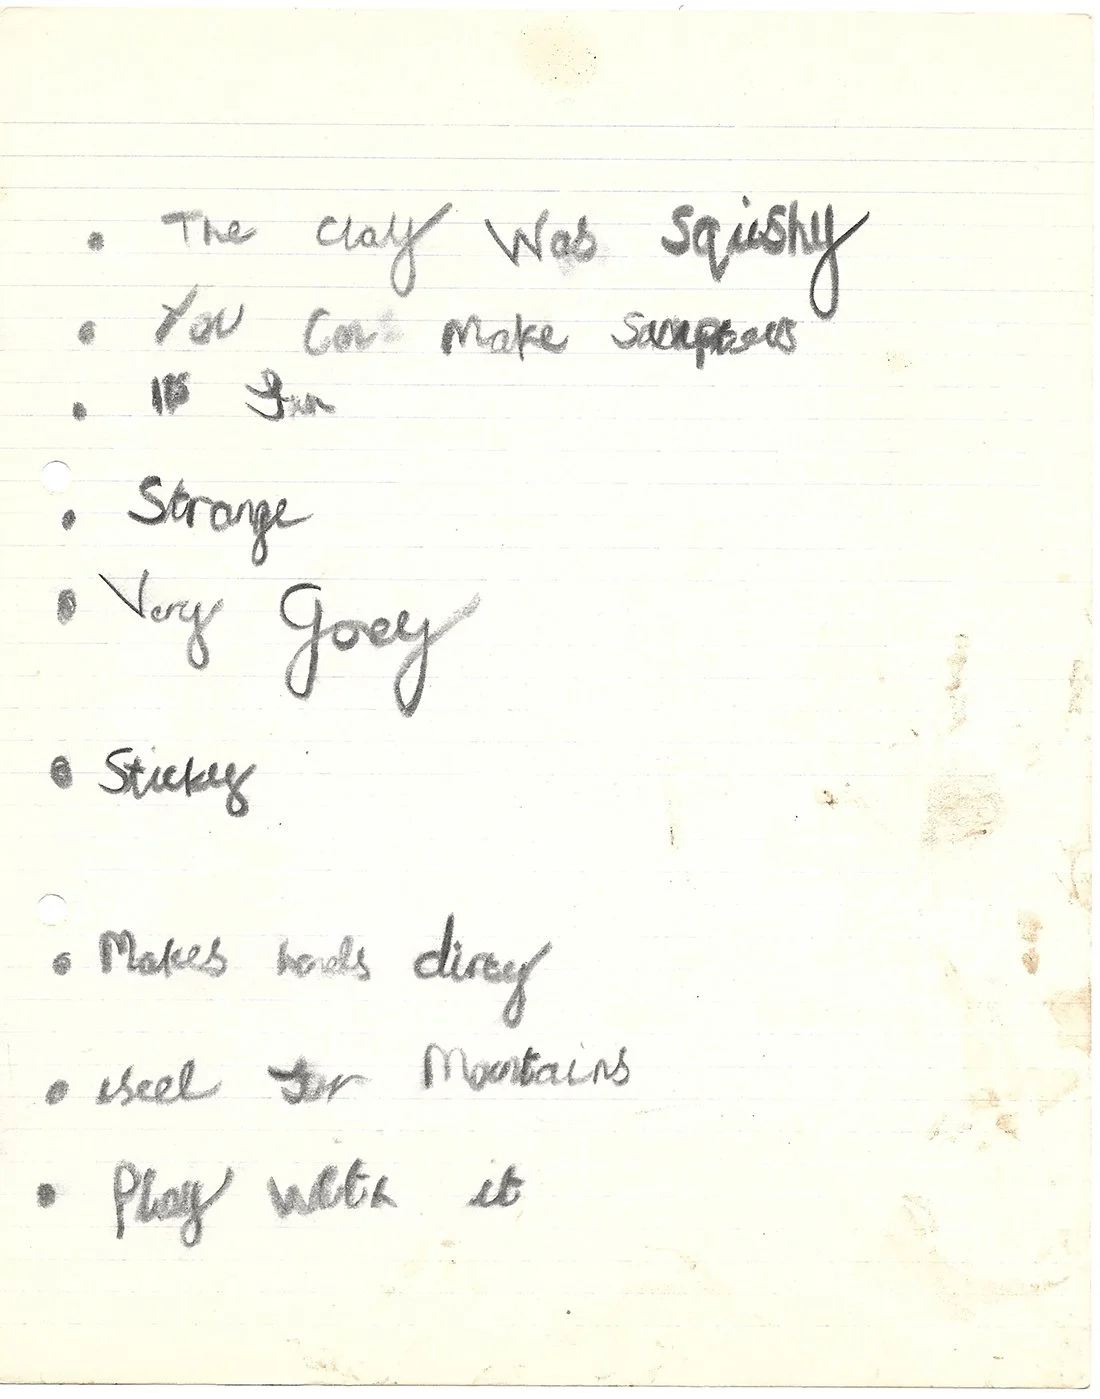 • The clay Was Squishy
• You Can Make
• Fun
• Strange
• Very Gooey
• Sticky
• Makes hands dirty
• for Mountains
• Play with it